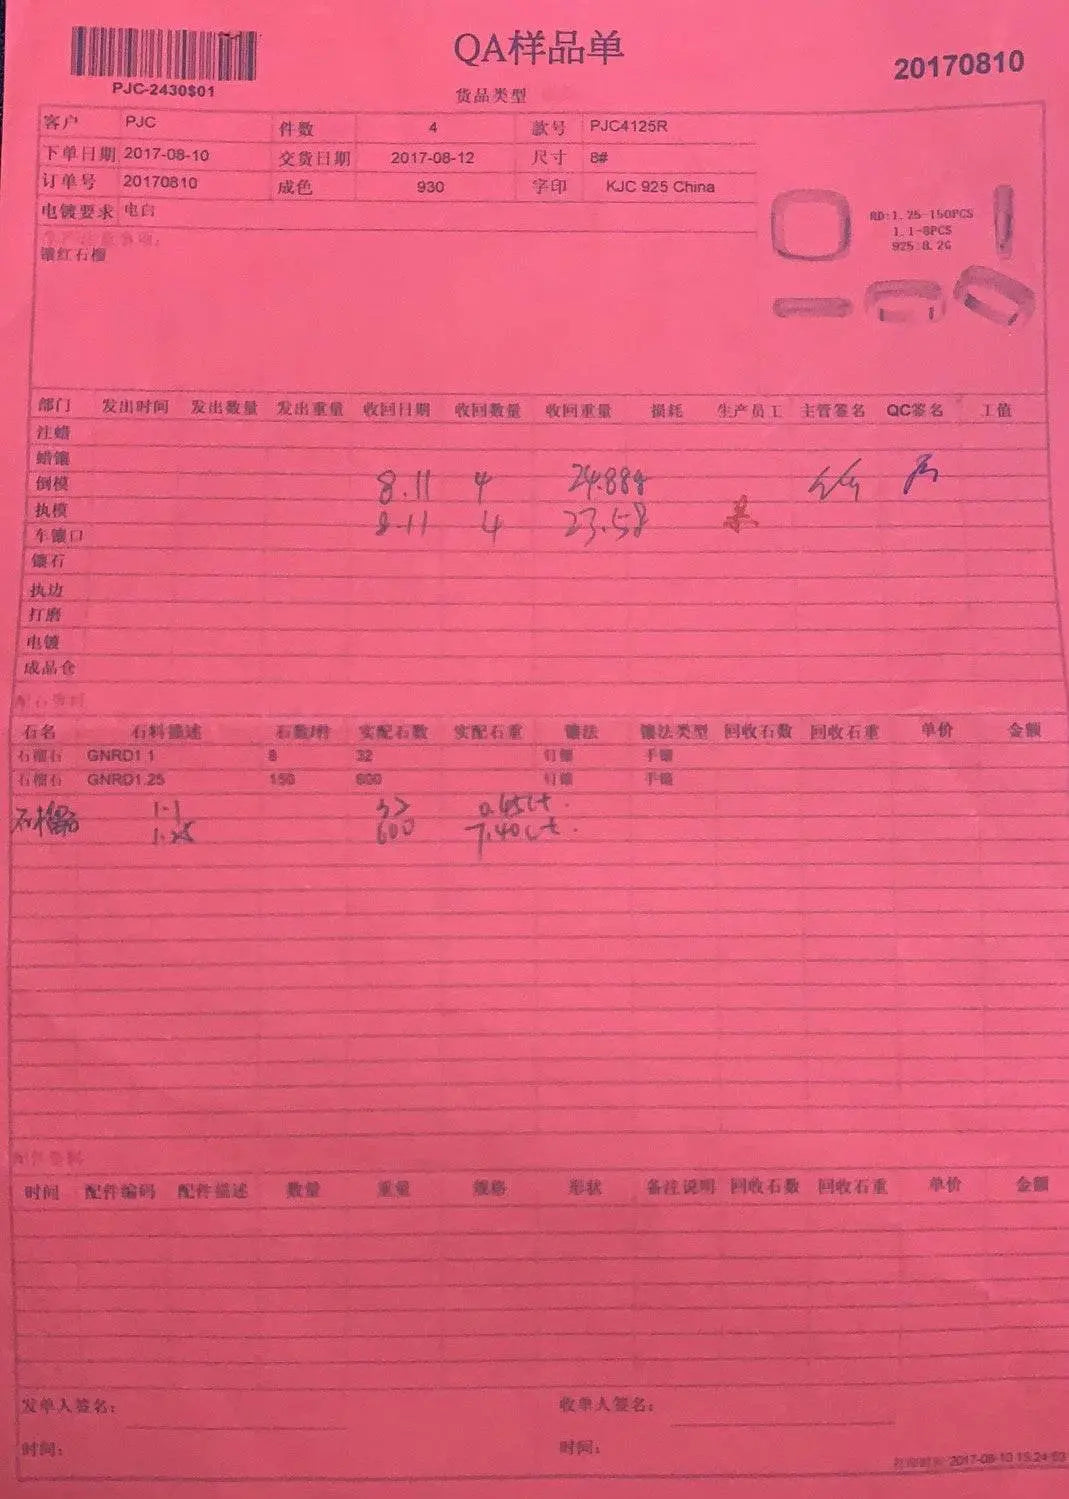 QA样品单
20170810
PJC-2430$01
货品类型
客户 PJC 件数 4 款号 PJC4125R
下单日期 2017-08-10 交货日期 2017-08-12 尺寸 8#
订单号 20170810 成色 930 字印 KJC 925 China
电镀要求 电白
镶红石榴
RD:1.25-150PCS
1.1-8PCS
925:8.2G
部门 发出时间 发出数量 发出重量 收回日期 收回数量 收回重量 损耗 生产员工 主管签名 QC签名 工值
注蜡
蜡镶
倒模 8.11 4 24.88g
执模 8.11 4 23.58
车镶口
镶石
执边
打磨
电镀
成品仓
石名 石料描述 石数/件 实配石数 实配石重 镶法 镶法类型 回收石数 回收石重 单价 金额
石榴石 GNRD1.1 8 32 钉镶 手镶
石榴石 GNRD1.25 150 600 钉镶 手镶
石榴石 1.1 32 0.45ct.
1.25 600 7.40ct.
时间 配件编码 配件描述 数量 重量 规格 形状 备注说明 回收石数 回收石重 单价 金额
发单人签名: 收单人签名:
时间: 时间:
打印时间 2017-08-10 15:24:53